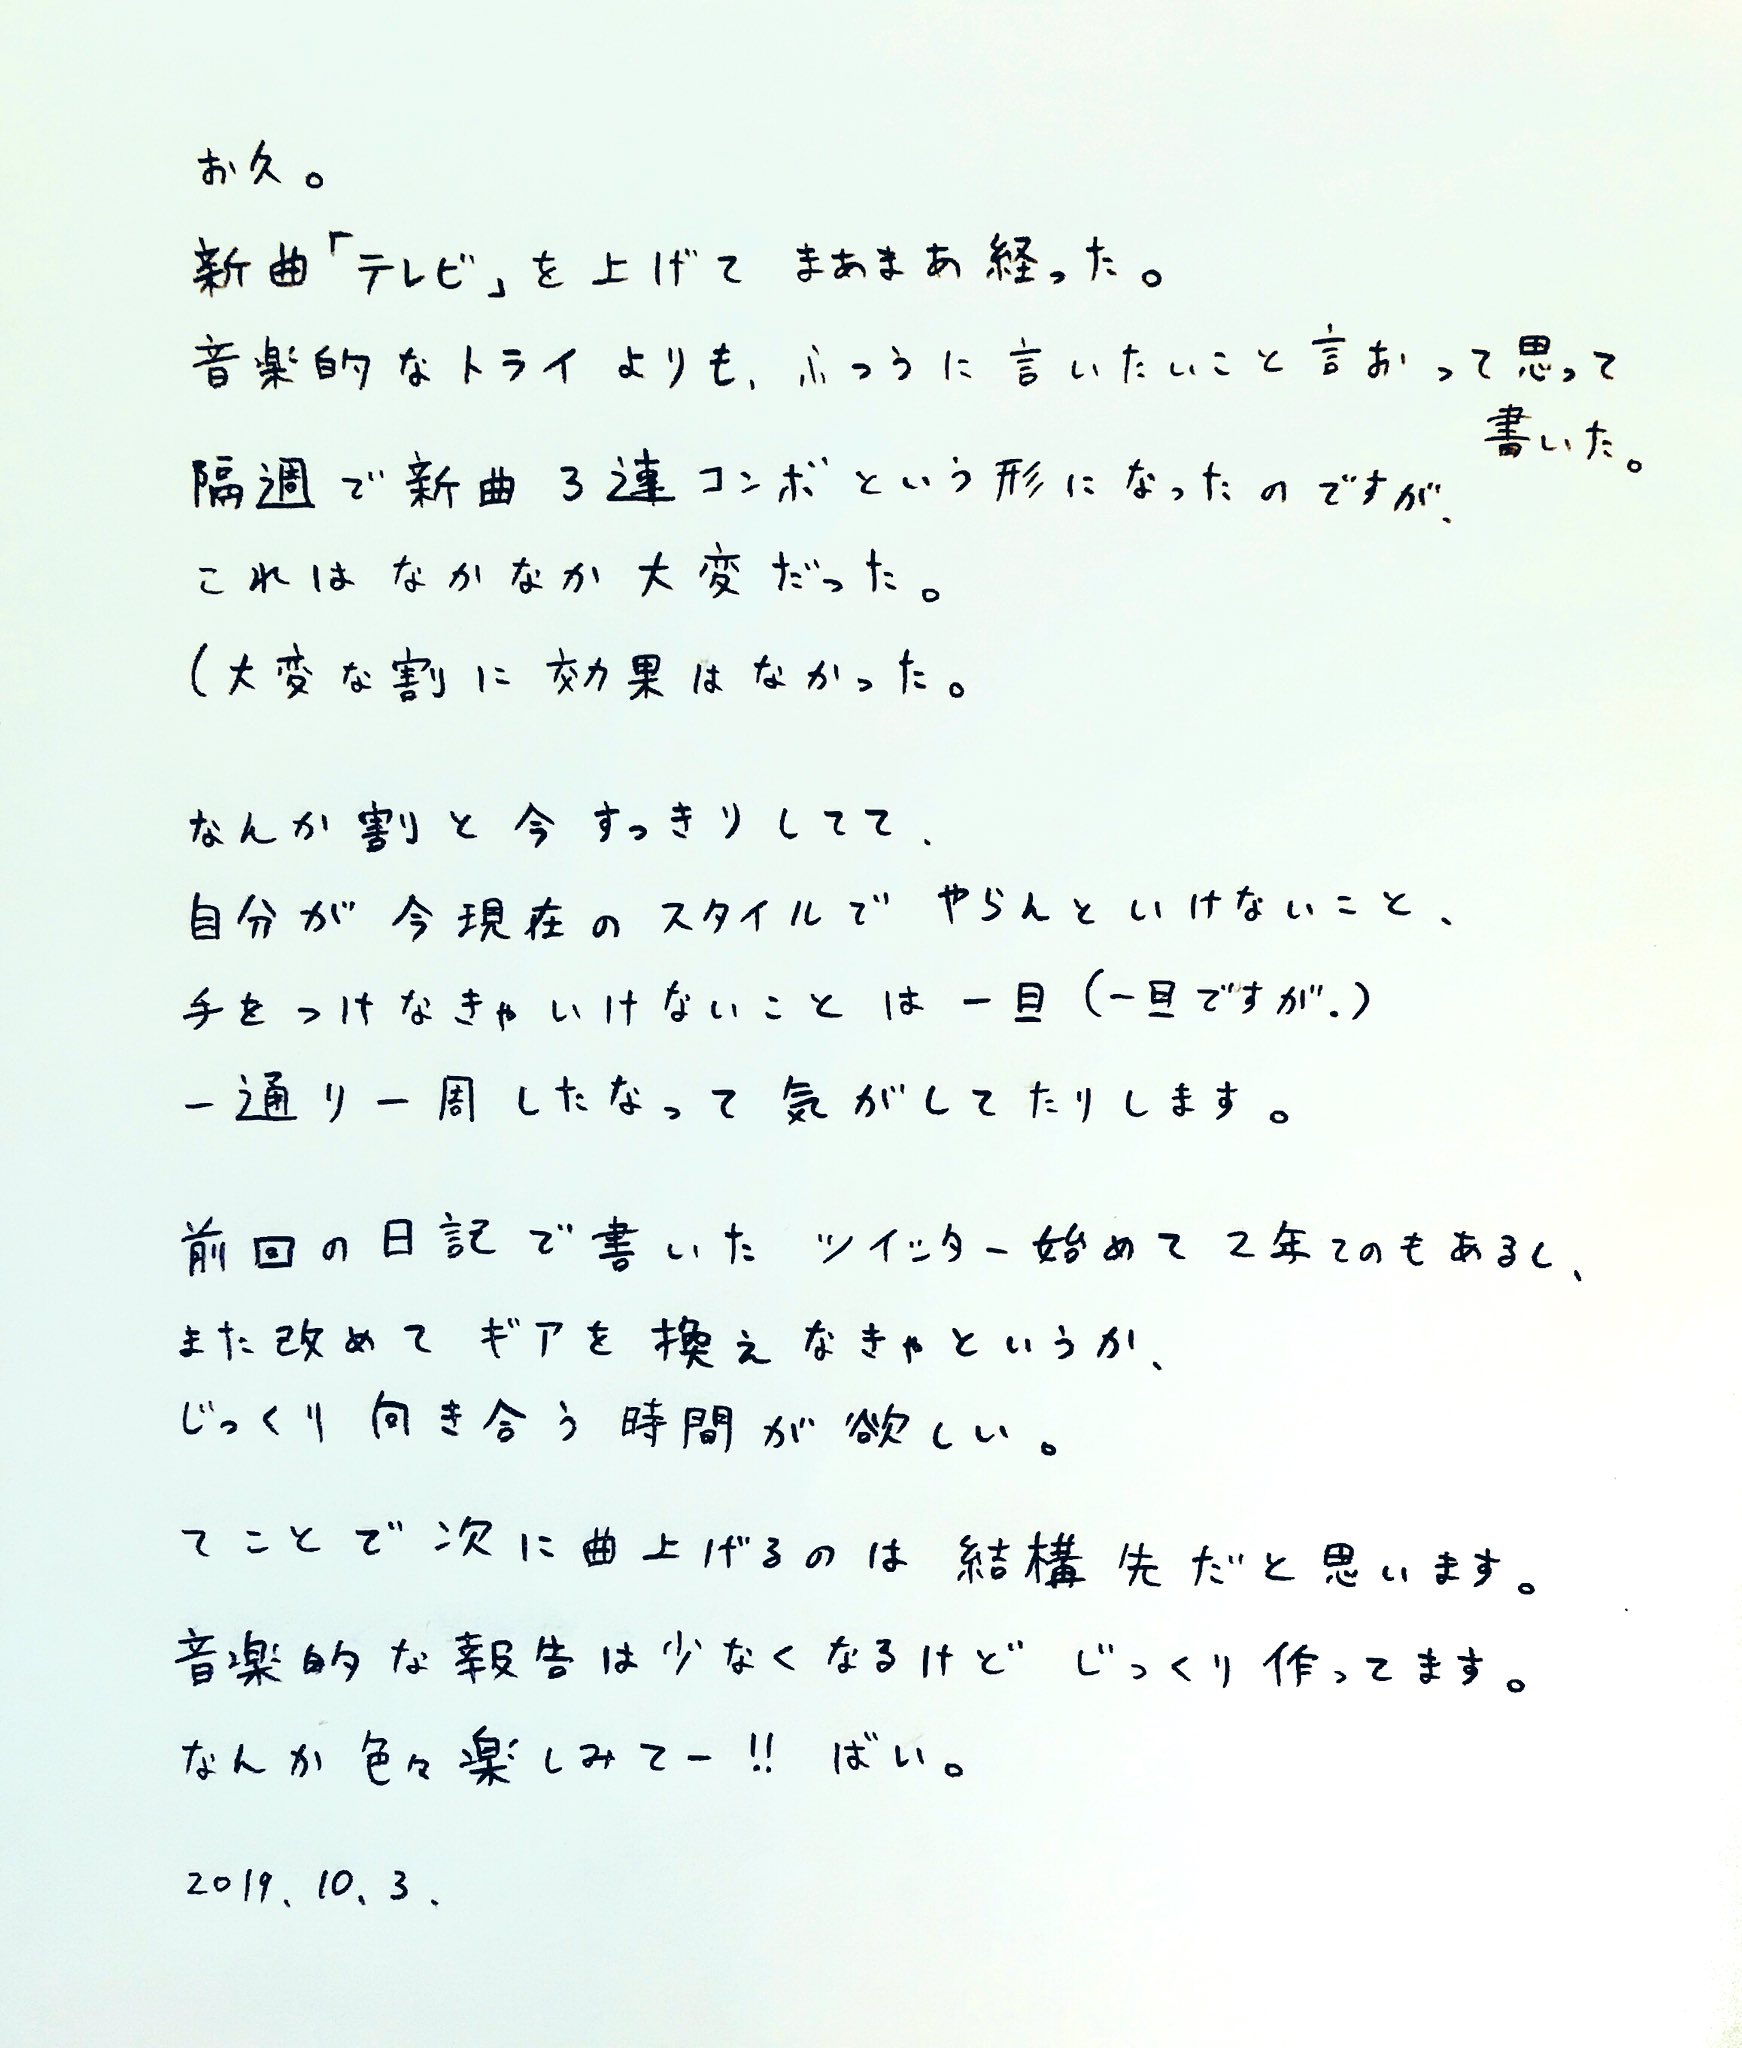 お久。
新曲「テレビ」を上げて まあまあ経った。
音楽的なトライよりも、ふつうに言いたいこと言おって思って
書いた。
隔週で新曲3連コンボという形になったのですが、
これはなかなか大変だった。
(大変な割に効果はなかった。
なんか割と今すっきりしてて、
自分が今現在のスタイルで やらんといけないこと、
手をつけなきゃいけないこと は一旦(一旦ですが.)
一通り一周したなって気がしてたりします。
前回の日記で書いた ツイッター始めて2年てのもあるし、
また改めて ギアを換えなきゃというか、
じっくり向き合う時間が欲しい。
てことで次に曲上げるのは 結構先だと思います。
音楽的な報告は少なくなるけど じっくり作ってます。
なんか色々楽しみてー!! ばい。
2019.10.3.